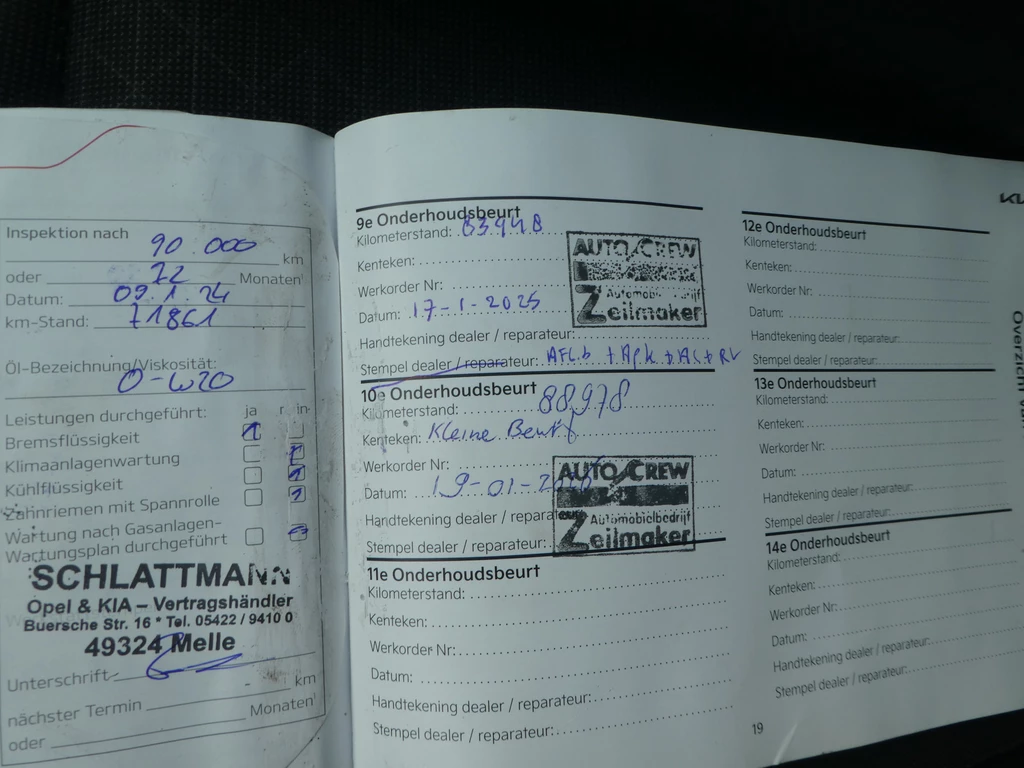 Inspektion nach 90.000 km
oder 72 Monaten¹
Datum: 09.1.24
km-Stand: 71861
Öl-Bezeichnung/Viskosität:
0-W20
Leistungen durchgeführt: ja
Bremsflüssigkeit
Klimaanlagenwartung
Kühlflüssigkeit
Zahnriemen mit Spannrolle
Wartung nach Gasanlagen-
Wartungsplan durchgeführt
SCHLATTMANN
Opel & KIA – Vertragshändler
Buersche Str. 16 * Tel. 05422 / 9410 0
49324 Melle
Unterschrift
nächster Termin km
oder Monaten¹
9e Onderhoudsbeurt
Kilometerstand: 83948
Kenteken:
Werkorder Nr:
Datum: 17-1-2025
Handtekening dealer / reparateur:
Stempel dealer / reparateur:
AUTO CREW
Automobielbedrijf
Zeilmaker
10e Onderhoudsbeurt
Kilometerstand: 88978
Kenteken: Kleine Beurt
Werkorder Nr:
Datum: 19-01-
Handtekening dealer / reparateur:
Stempel dealer / reparateur:
AUTO CREW
Automobielbedrijf
Zeilmaker
11e Onderhoudsbeurt
Kilometerstand:
Kenteken:
Werkorder Nr:
Datum:
Handtekening dealer / reparateur:
Stempel dealer / reparateur:
12e Onderhoudsbeurt
Kilometerstand:
Kenteken:
Werkorder Nr:
Datum:
Handtekening dealer / reparateur:
Stempel dealer / reparateur:
13e Onderhoudsbeurt
Kilometerstand:
Kenteken:
Werkorder Nr:
Datum:
Handtekening dealer / reparateur:
Stempel dealer / reparateur:
14e Onderhoudsbeurt
Kilometerstand:
Kenteken:
Werkorder Nr:
Datum:
Handtekening dealer / reparateur:
Stempel dealer / reparateur:
19
Overzicht van